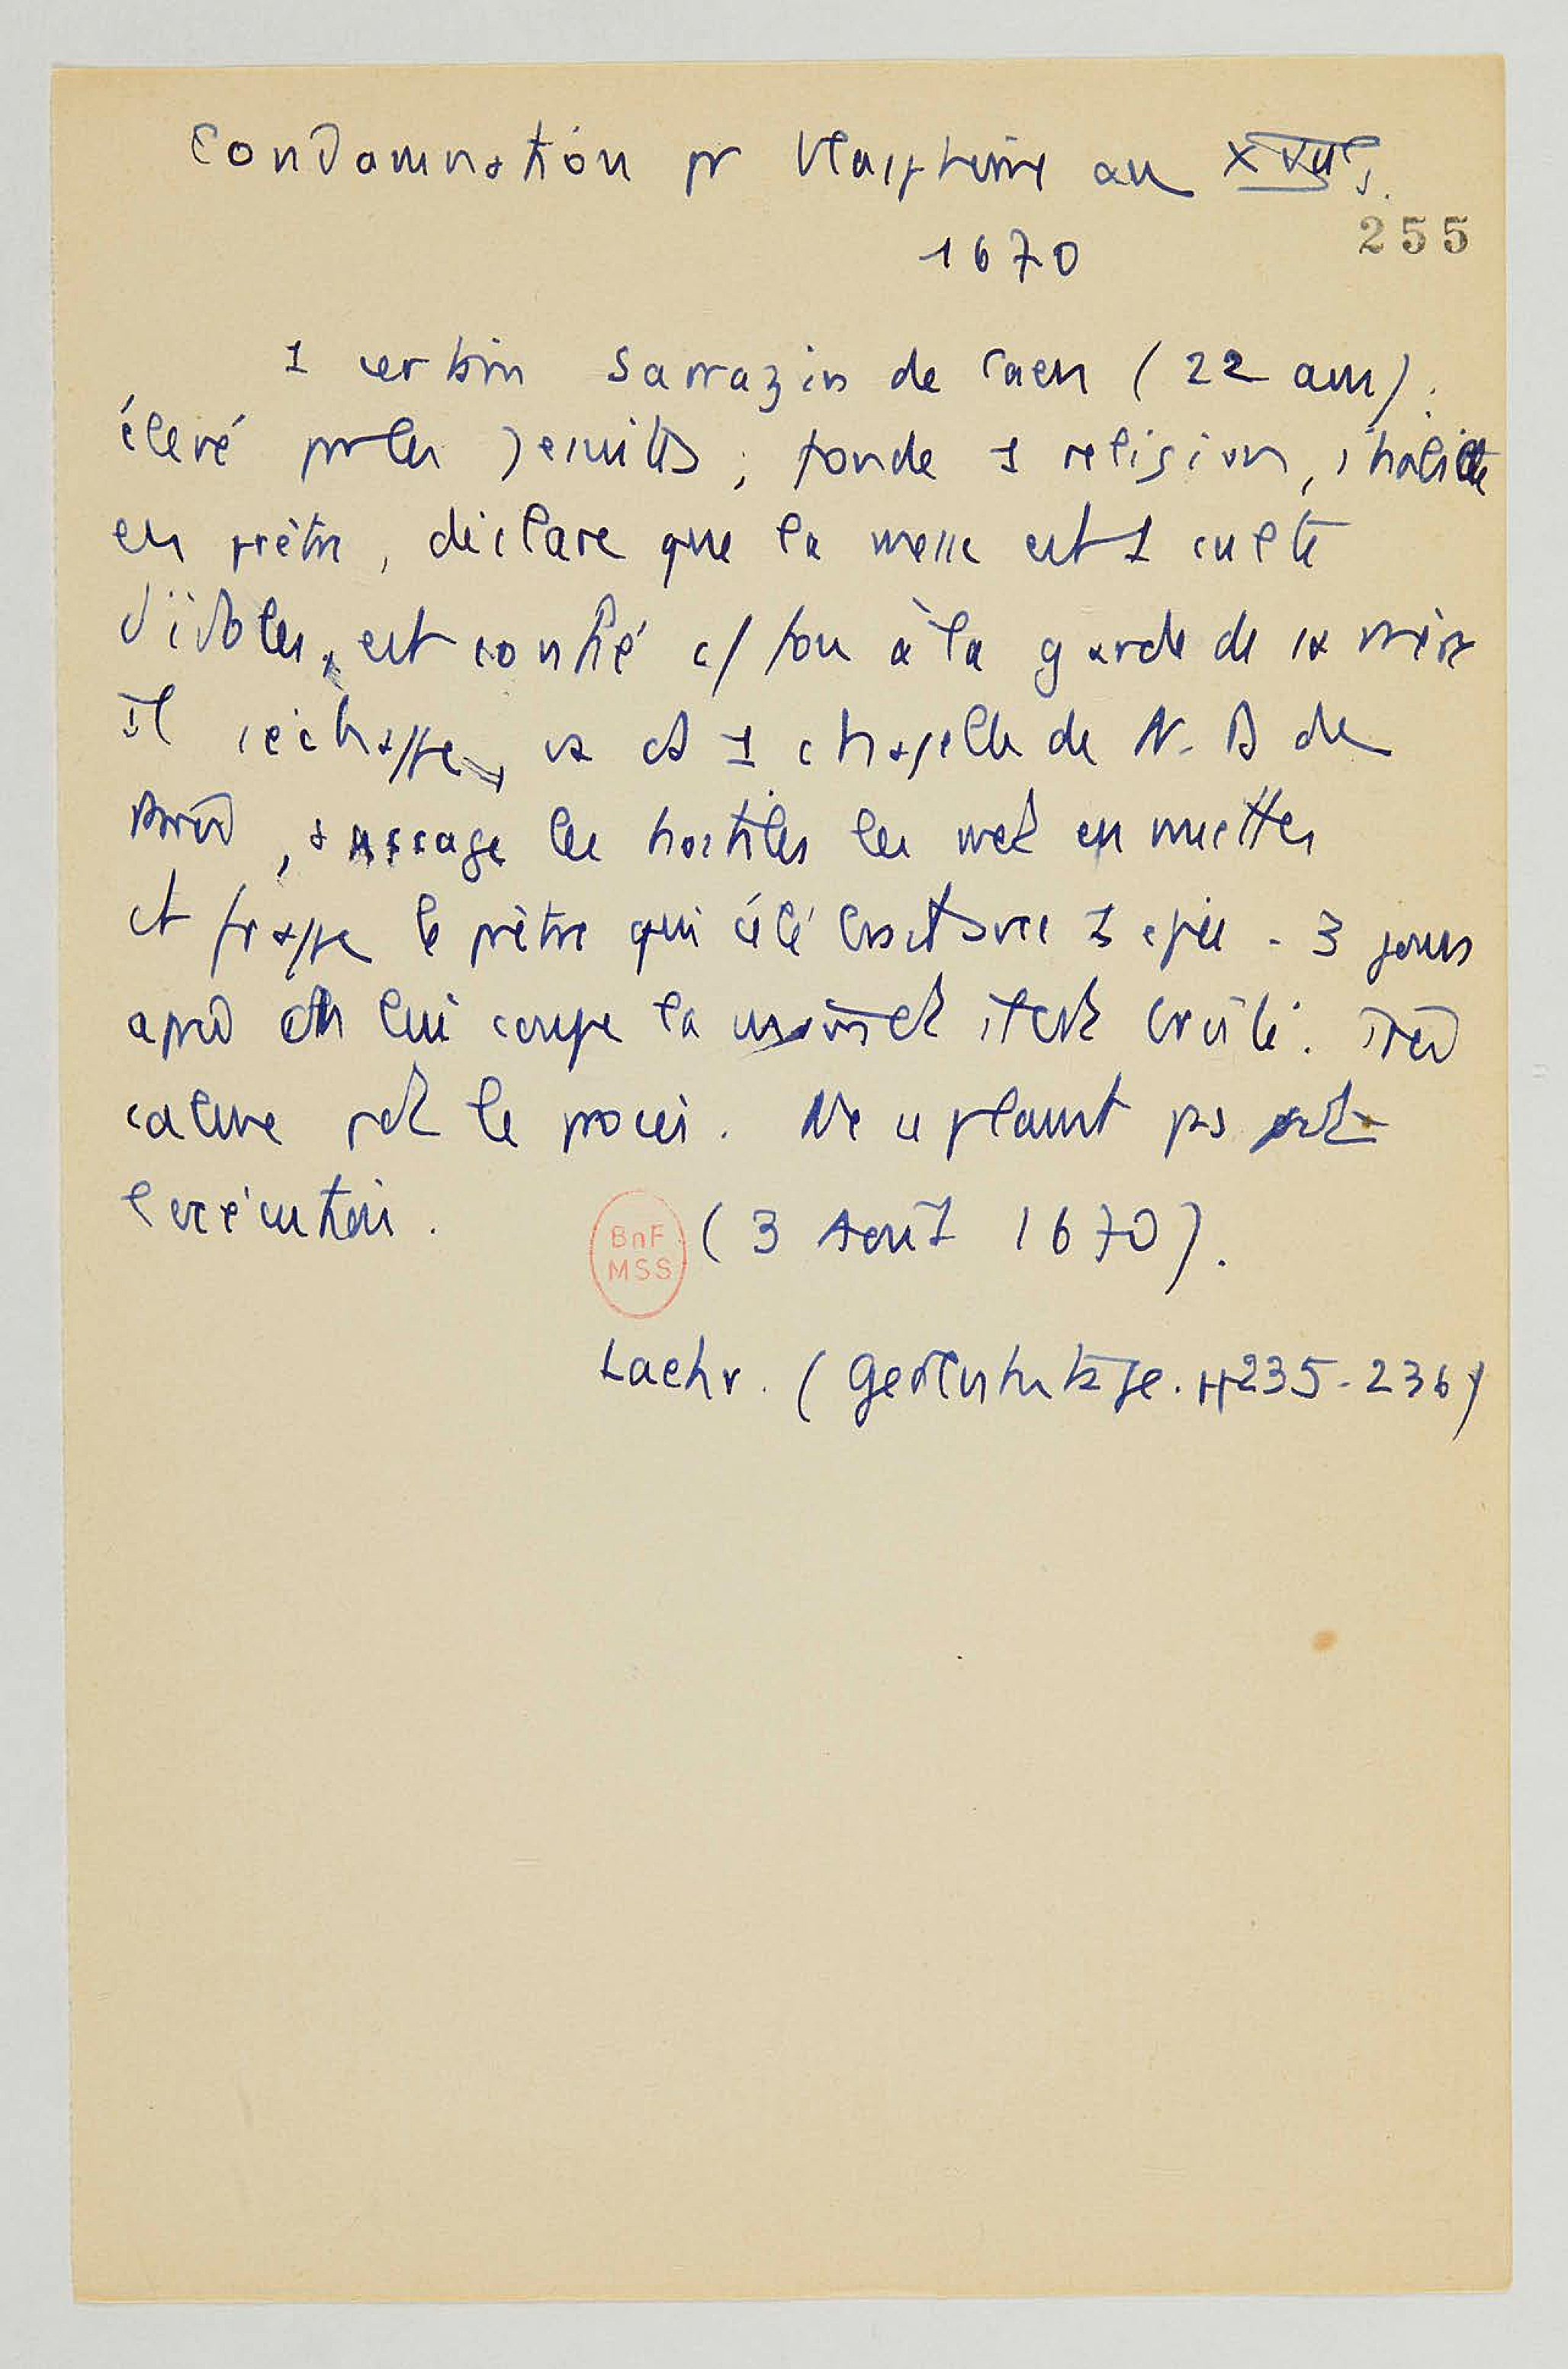 Condamnation pr blasphème au XVIIe s.
255
1670
1 certain Sarrazin de Caen (22 ans).
élevé par les Jésuites ; fonde 1 religion, s'habille
en prêtre, déclare que la messe est 1 culte
d'idoles, est confié c/ fou à la garde de sa mère
Il s'échappe, va ds 1 chapelle de N. D de
Paris, saccage les hosties les met en miettes
et frappe le prêtre qui célébrait avec 1 épée - 3 jours
après on lui coupe la main et il est brûlé. Très
calme pdt le procès. Ne se plaint pas pdt
l'exécution.
BnF
MSS
(3 Août 1670).
Laehr. (Gedenktage. II 235-236)